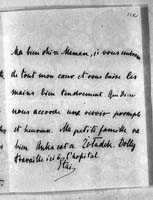 Ma bien chère Maman, je vous embrasse
de tout mon cœur et vous baise les
mains bien tendrement. Que Dieu
nous accorde une revoir prompt
et heureux. Ma petite famille va
bien
travaille ici à l'hôpital.